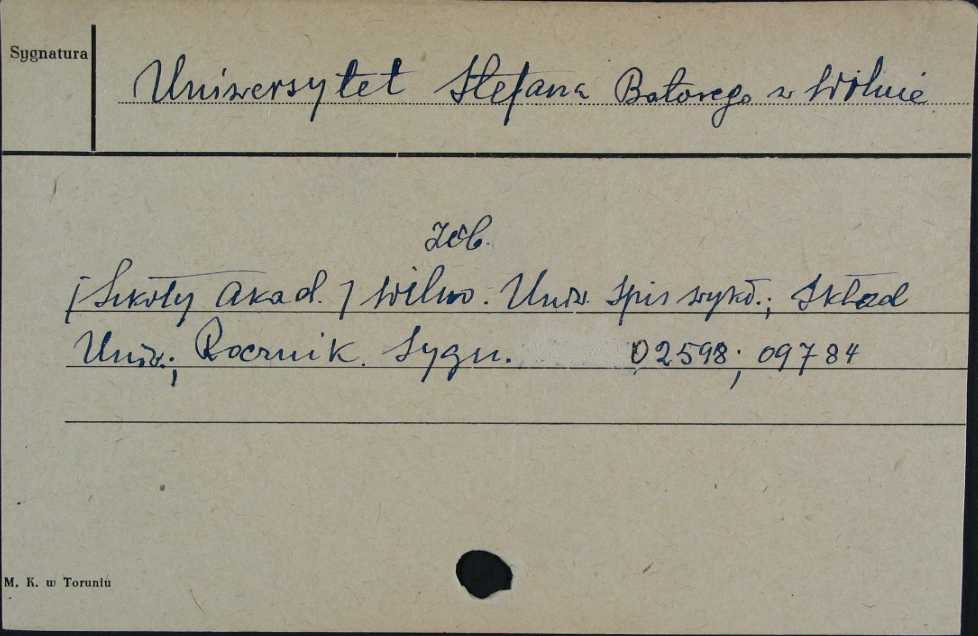 Sygnatura
Uniwersytet Stefana Batorego w Wilnie
Zob.
[Szkoły Akad.] Wilno. Uniw. Spis wykł.; Skład
Uniw.; Rocznik. Sygn. 02598; 09784
M. K. w Toruniu